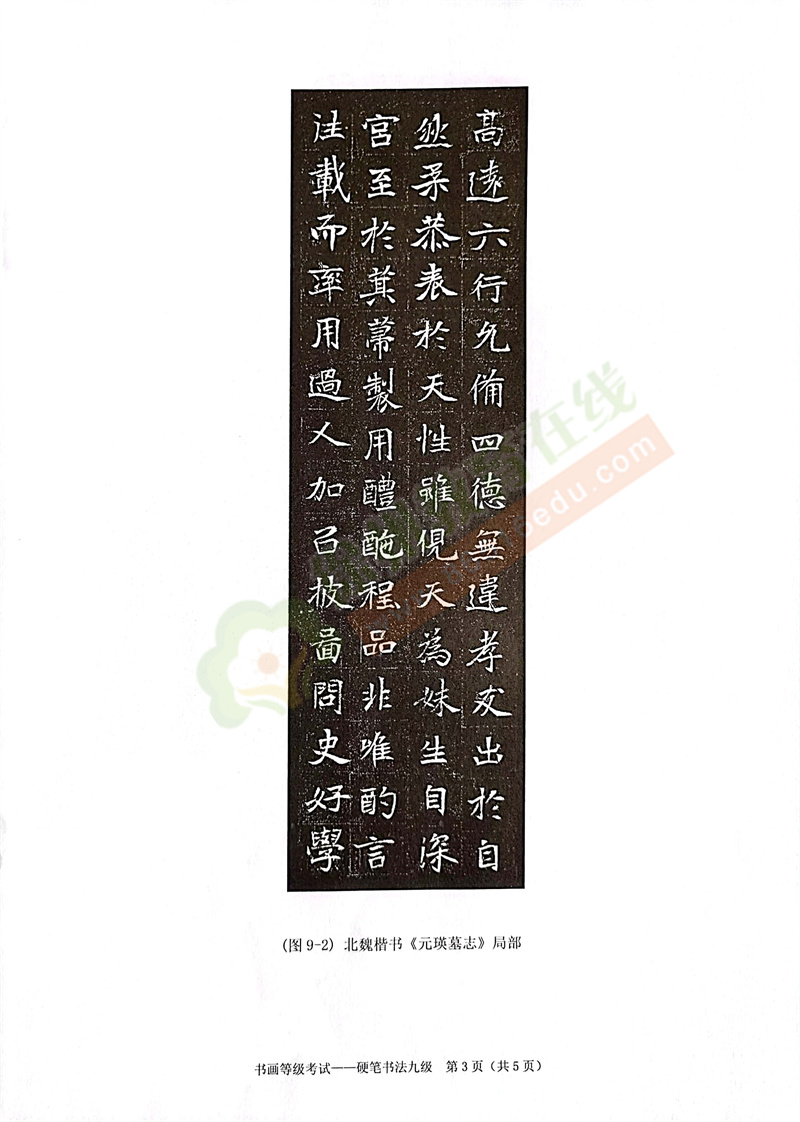 高遠六行允備四德無違孝友出於自
然柔恭表於天性雖俔天為妹生自深
宮至於蓂莆製用醴酏程品非唯酌言
注載而率用過人加㠯披啚問史好學
(图9-2) 北魏楷书《元瑛墓志》局部
书画等级考试——硬笔书法九级 第3页（共5页）